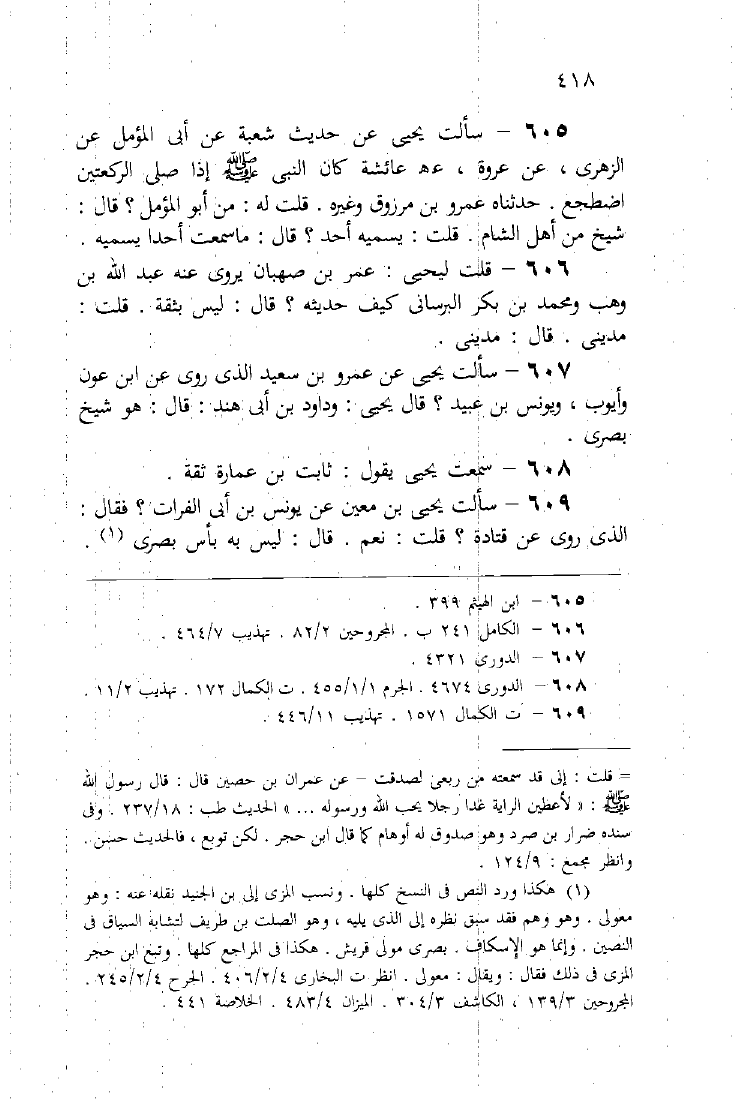 ٤١٨
٦٠٥ – سألت يحيى عن حديث شعبة عن أبى المؤمل عن
الزهرى ، عن عروة ، عه عائشة كان النبى ﷺ إذا صلى الركعتين
اضطجع . حدثناه عمرو بن مرزوق وغيره . قلت له : من أبو المؤمل ؟ قال :
شيخ من أهل الشام . قلت : يسميه أحد ؟ قال : ماسمعت أحدا يسميه .
٦٠٦ – قلت ليحيى : عمر بن صهبان يروى عنه عبد الله بن
وهب ومحمد بن بكر البرسانى كيف حديثه ؟ قال : ليس بثقة . قلت :
مدينى . قال : مدينى .
٦٠٧ – سألت يحيى عن عمرو بن سعيد الذى روى عن ابن عون
وأيوب ، ويونس بن عبيد ؟ قال يحيى : وداود بن أبى هند : قال : هو شيخ
بصرى .
٦٠٨ – سمعت يحيى يقول : ثابت بن عمارة ثقة .
٦٠٩ – سألت يحيى بن معين عن يونس بن أبى الفرات ؟ فقال :
الذى روى عن قتادة ؟ قلت : نعم . قال : ليس به بأس بصرى (١) .
٦٠٥ – ابن الهيثم ٣٩٩ .
٦٠٦ – الكامل ٢٤١ ب . المجروحين ٨٢/٢ . تهذيب ٤٦٤/٧ .
٦٠٧ – الدورى ٤٣٢١ .
٦٠٨ – الدورى ٤٦٧٤ . الجرم ٤٥٥/١/١ . ت الكمال ١٧٢ . تهذيب ١١/٢ .
٦٠٩ – ت الكمال ١٥٧١ . تهذيب ٤٤٦/١١ .
= قلت : إنى قد سمعته من ربعى لصدقت – عن عمران بن حصين قال : قال رسول الله
ﷺ : « لأعطين الراية غدا رجلا يحب الله ورسوله ... » الحديث طب : ٢٣٧/١٨ . وفى
سنده ضرار بن صرد وهو صدوق له أوهام كما قال ابن حجر . لكن توبع ، فالحديث حسن .
وانظر مجمع : ١٢٤/٩ .
(١) هكذا ورد النص فى النسخ كلها . ونسب المزى إلى بن الجنيد نقله عنه : وهو
معولى . وهو وهم فقد سبق نظره إلى الذى يليه ، وهو الصلت بن طريف لتشابة السياق فى
النصين . وإنما هو الإسكاف . بصرى مولى قريش . هكذا فى المراجع كلها . وتبع ابن حجر
المزى فى ذلك فقال : ويقال : معولى . انظر ت البخارى ٤٠٦/٢/٤ . الجرح ٢٤٥/٢/٤ .
المجروحين ١٣٩/٣ ، الكاشف ٣٠٤/٣ . الميزان ٤٨٣/٤ . الخلاصة ٤٤١ .